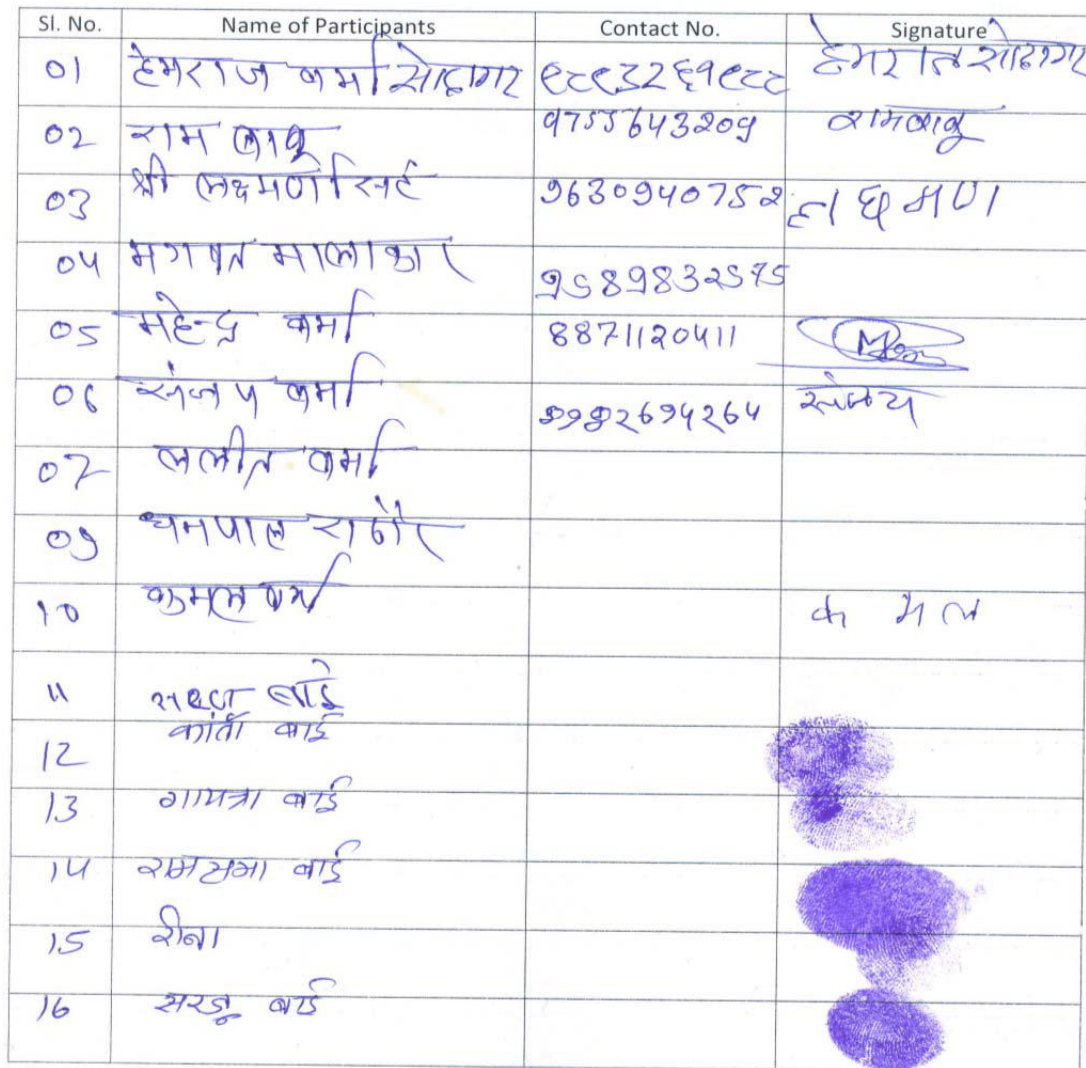 Sl. No. Name of Participants Contact No. Signature
01 हेमराज वर्मा सोदागर ९८९३२६१९८८ हेमराज सोदागर
02 राम बाबू 9755643209 रामबाबू
03 श्री लक्ष्मण सिंह 9630940752 लछमण
04 भगवत मालाकार 9589832575
05 महेन्द्र वर्मा 8871120411
06 संजय वर्मा 8982694264 संजय
07 ललीत वर्मा
09 धनपाल राठौर
10 कमल वर्मा कमल
11 बाई
12 कांता बाई
13 गायत्रा बाई
14 बाई
15 रीना
16 सरजू बाई